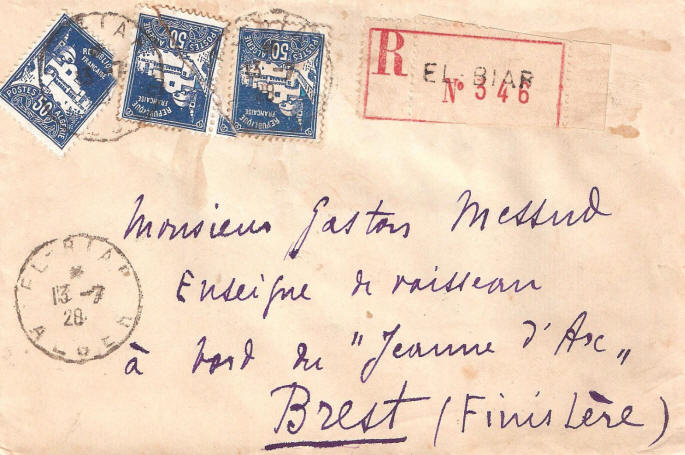 REPUBLIQUE FRANÇAISE
POSTES ALGERIE
50
REPUBLIQUE FRANÇAISE
POSTES ALGERIE
50
REPUBLIQUE FRANÇAISE
POSTES ALGERIE
50
13 -7
28
R
EL-BIAR
N° 346
EL-BIAR
*
13 -7
28
ALGER
Monsieur Gaston Messud
Enseigne de vaisseau
à bord du "Jeanne d'Arc"
Brest (Finistère)